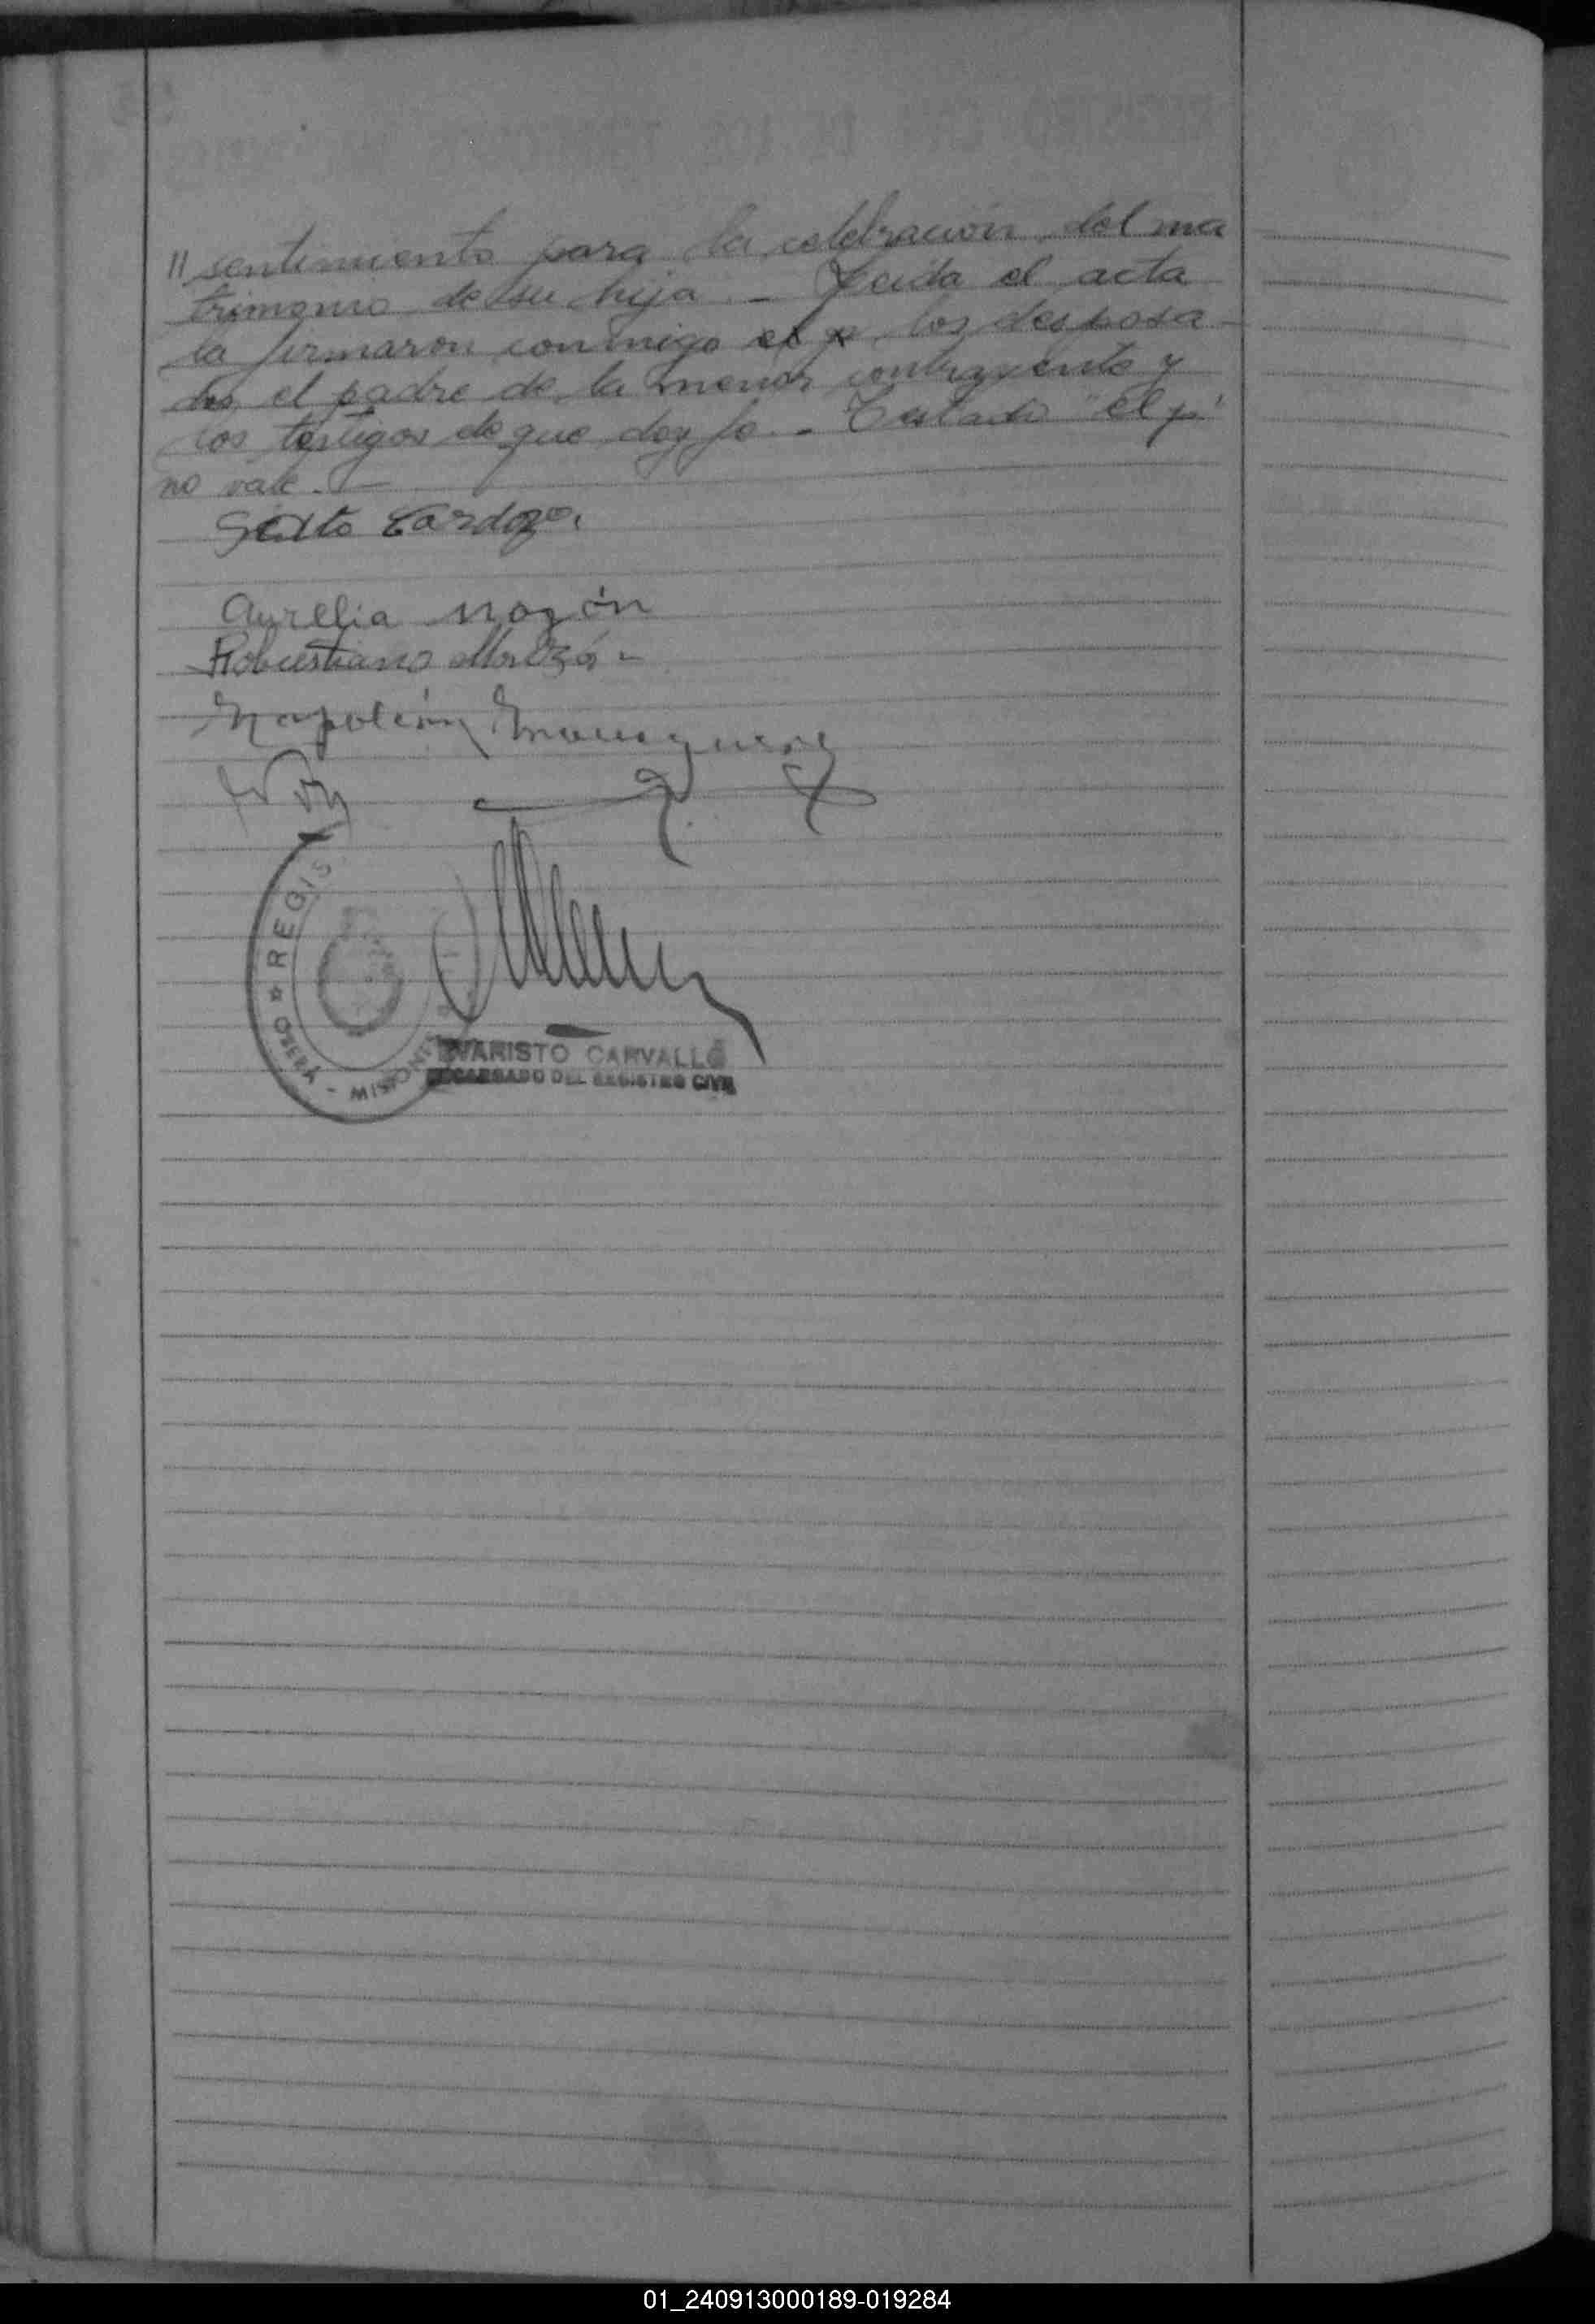 // sentimiento para la celebración del ma
trimonio de su hija. - Leida el acta
la firmaron conmigo el p los desposa-
dos, el padre de la menor contrayente y
los testigos de que doy fe. - Testado "el p"
no vale. -
Sixto Cardozo.
Aurelia mozón
Robustiano
Napoleón
REGIS
YABEB - MISIONES
EVARISTO CARVALLO
ENCARGADO DEL REGISTRO CIVIL
01_240913000189-019284